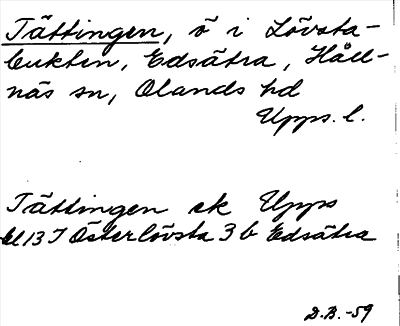 Tättingen, ö i Lövsta-
bukten, Edsätra, Håll-
näs sn, Olands hd
Upps. l.
Tättingen ek Upps
bl 13 I Österlövsta 3 b Edsätra
D.B. -59